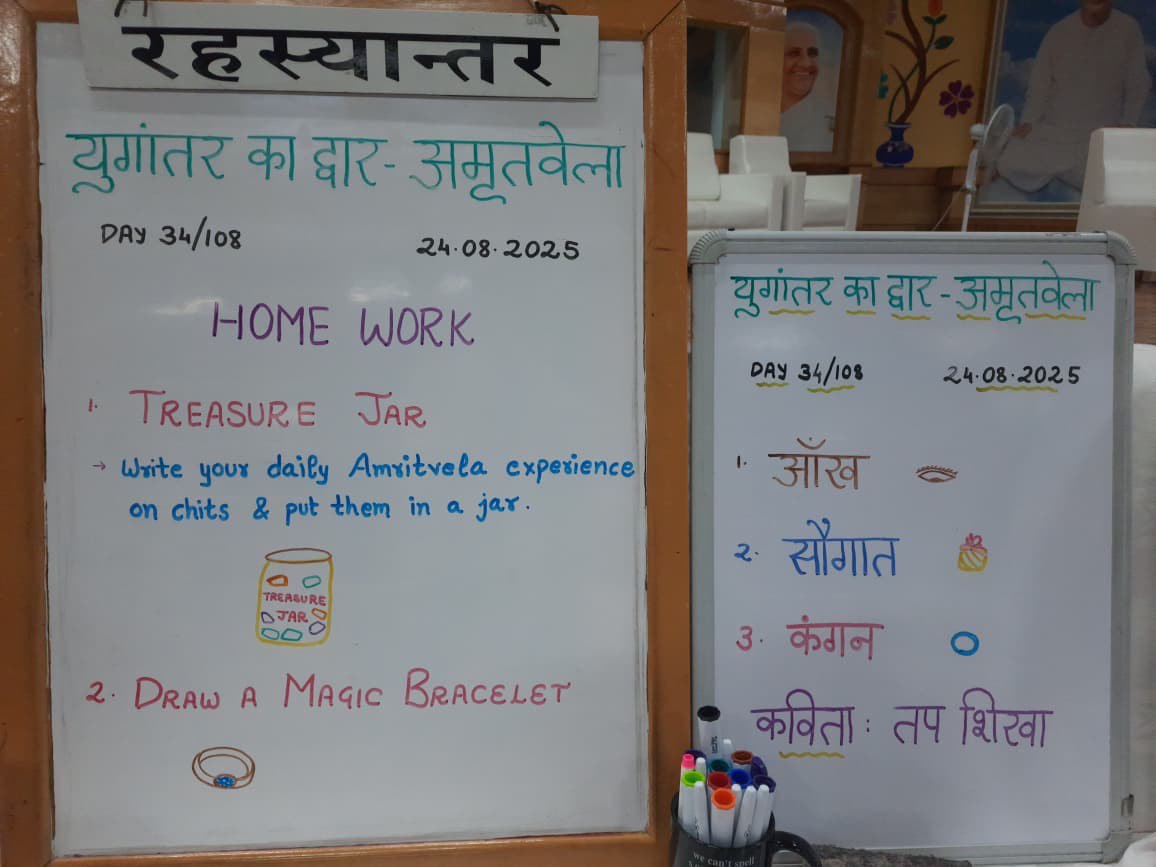 रहस्यान्तर
युगांतर का द्वार - अमृतवेला
DAY 34/108
24.08.2025
HOME WORK
1. TREASURE JAR
→ Write your daily Amritvela experience
on chits & put them in a jar.
TREASURE
JAR
2. DRAW A MAGIC BRACELET
युगांतर का द्वार - अमृतवेला
DAY 34/108
24.08.2025
1. आँख
२. सौगात
३. कंगन
कविता : तप शिखा
we can't spell